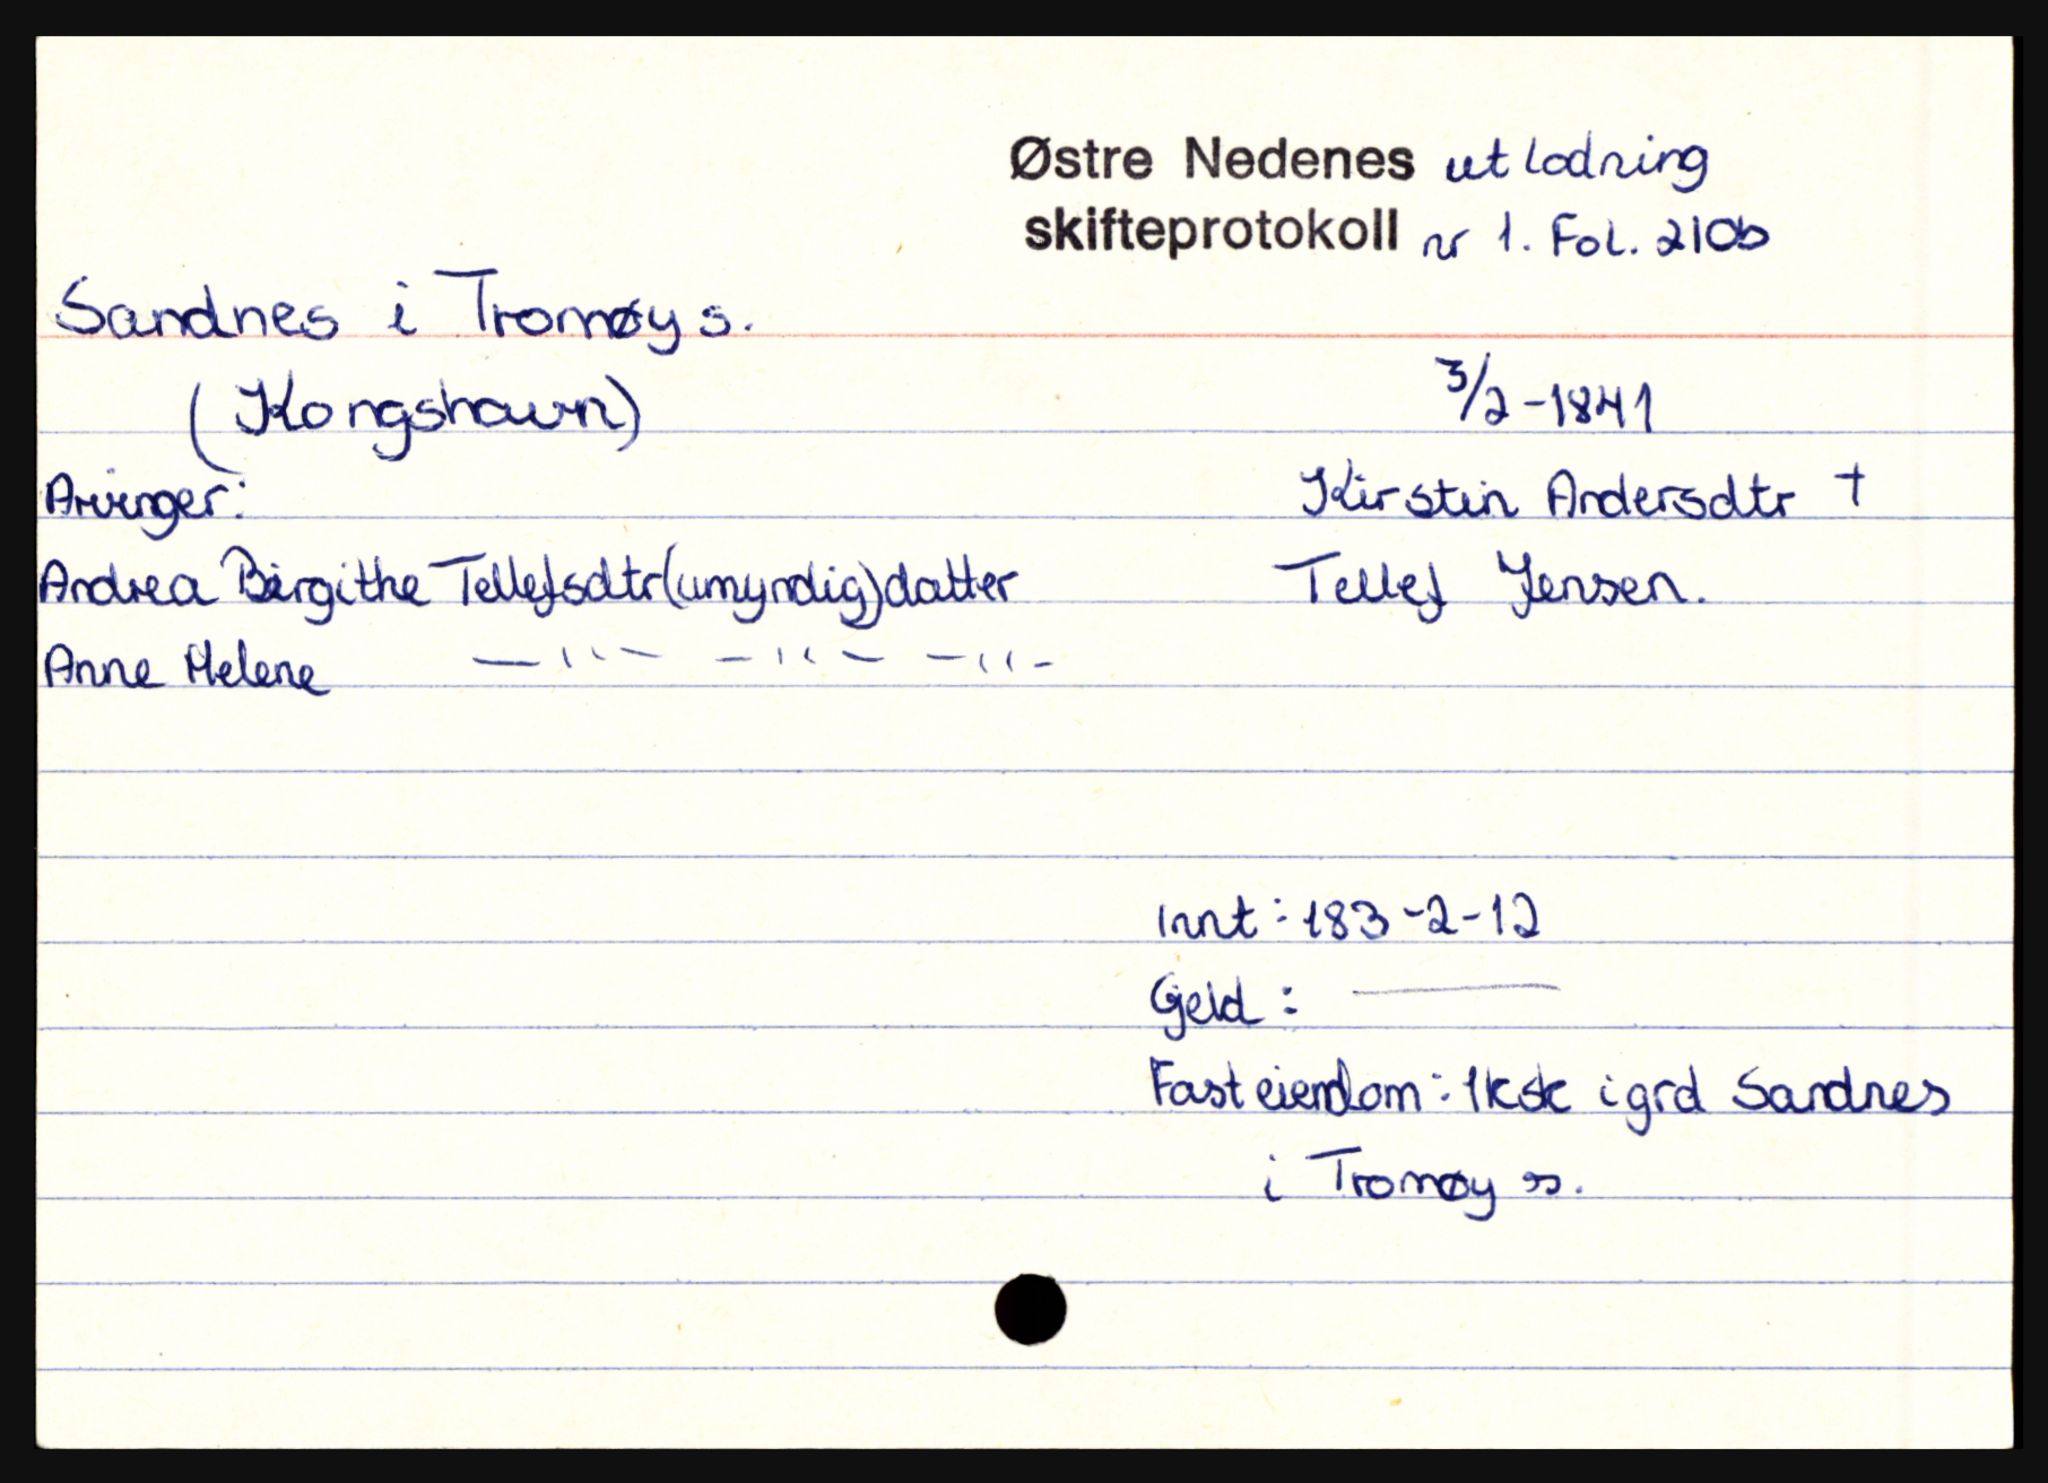 Østre Nedenes utlodning
skifteprotokoll nr 1. Fol. 210b
Sandnes i Tromøy s.
(Kongshavn)
3/2-1841
Arvinger:
Kirstin Andersdtr †
Andrea Birgithe Tellefsdtr (umyndig) datter
Tellef Jensen.
Anne Helene —"— —"— —"—
Innt: 183-2-12
Gjeld: ——
Fast eiendom: 1 ksk i grd Sandnes
i Tromøy s.